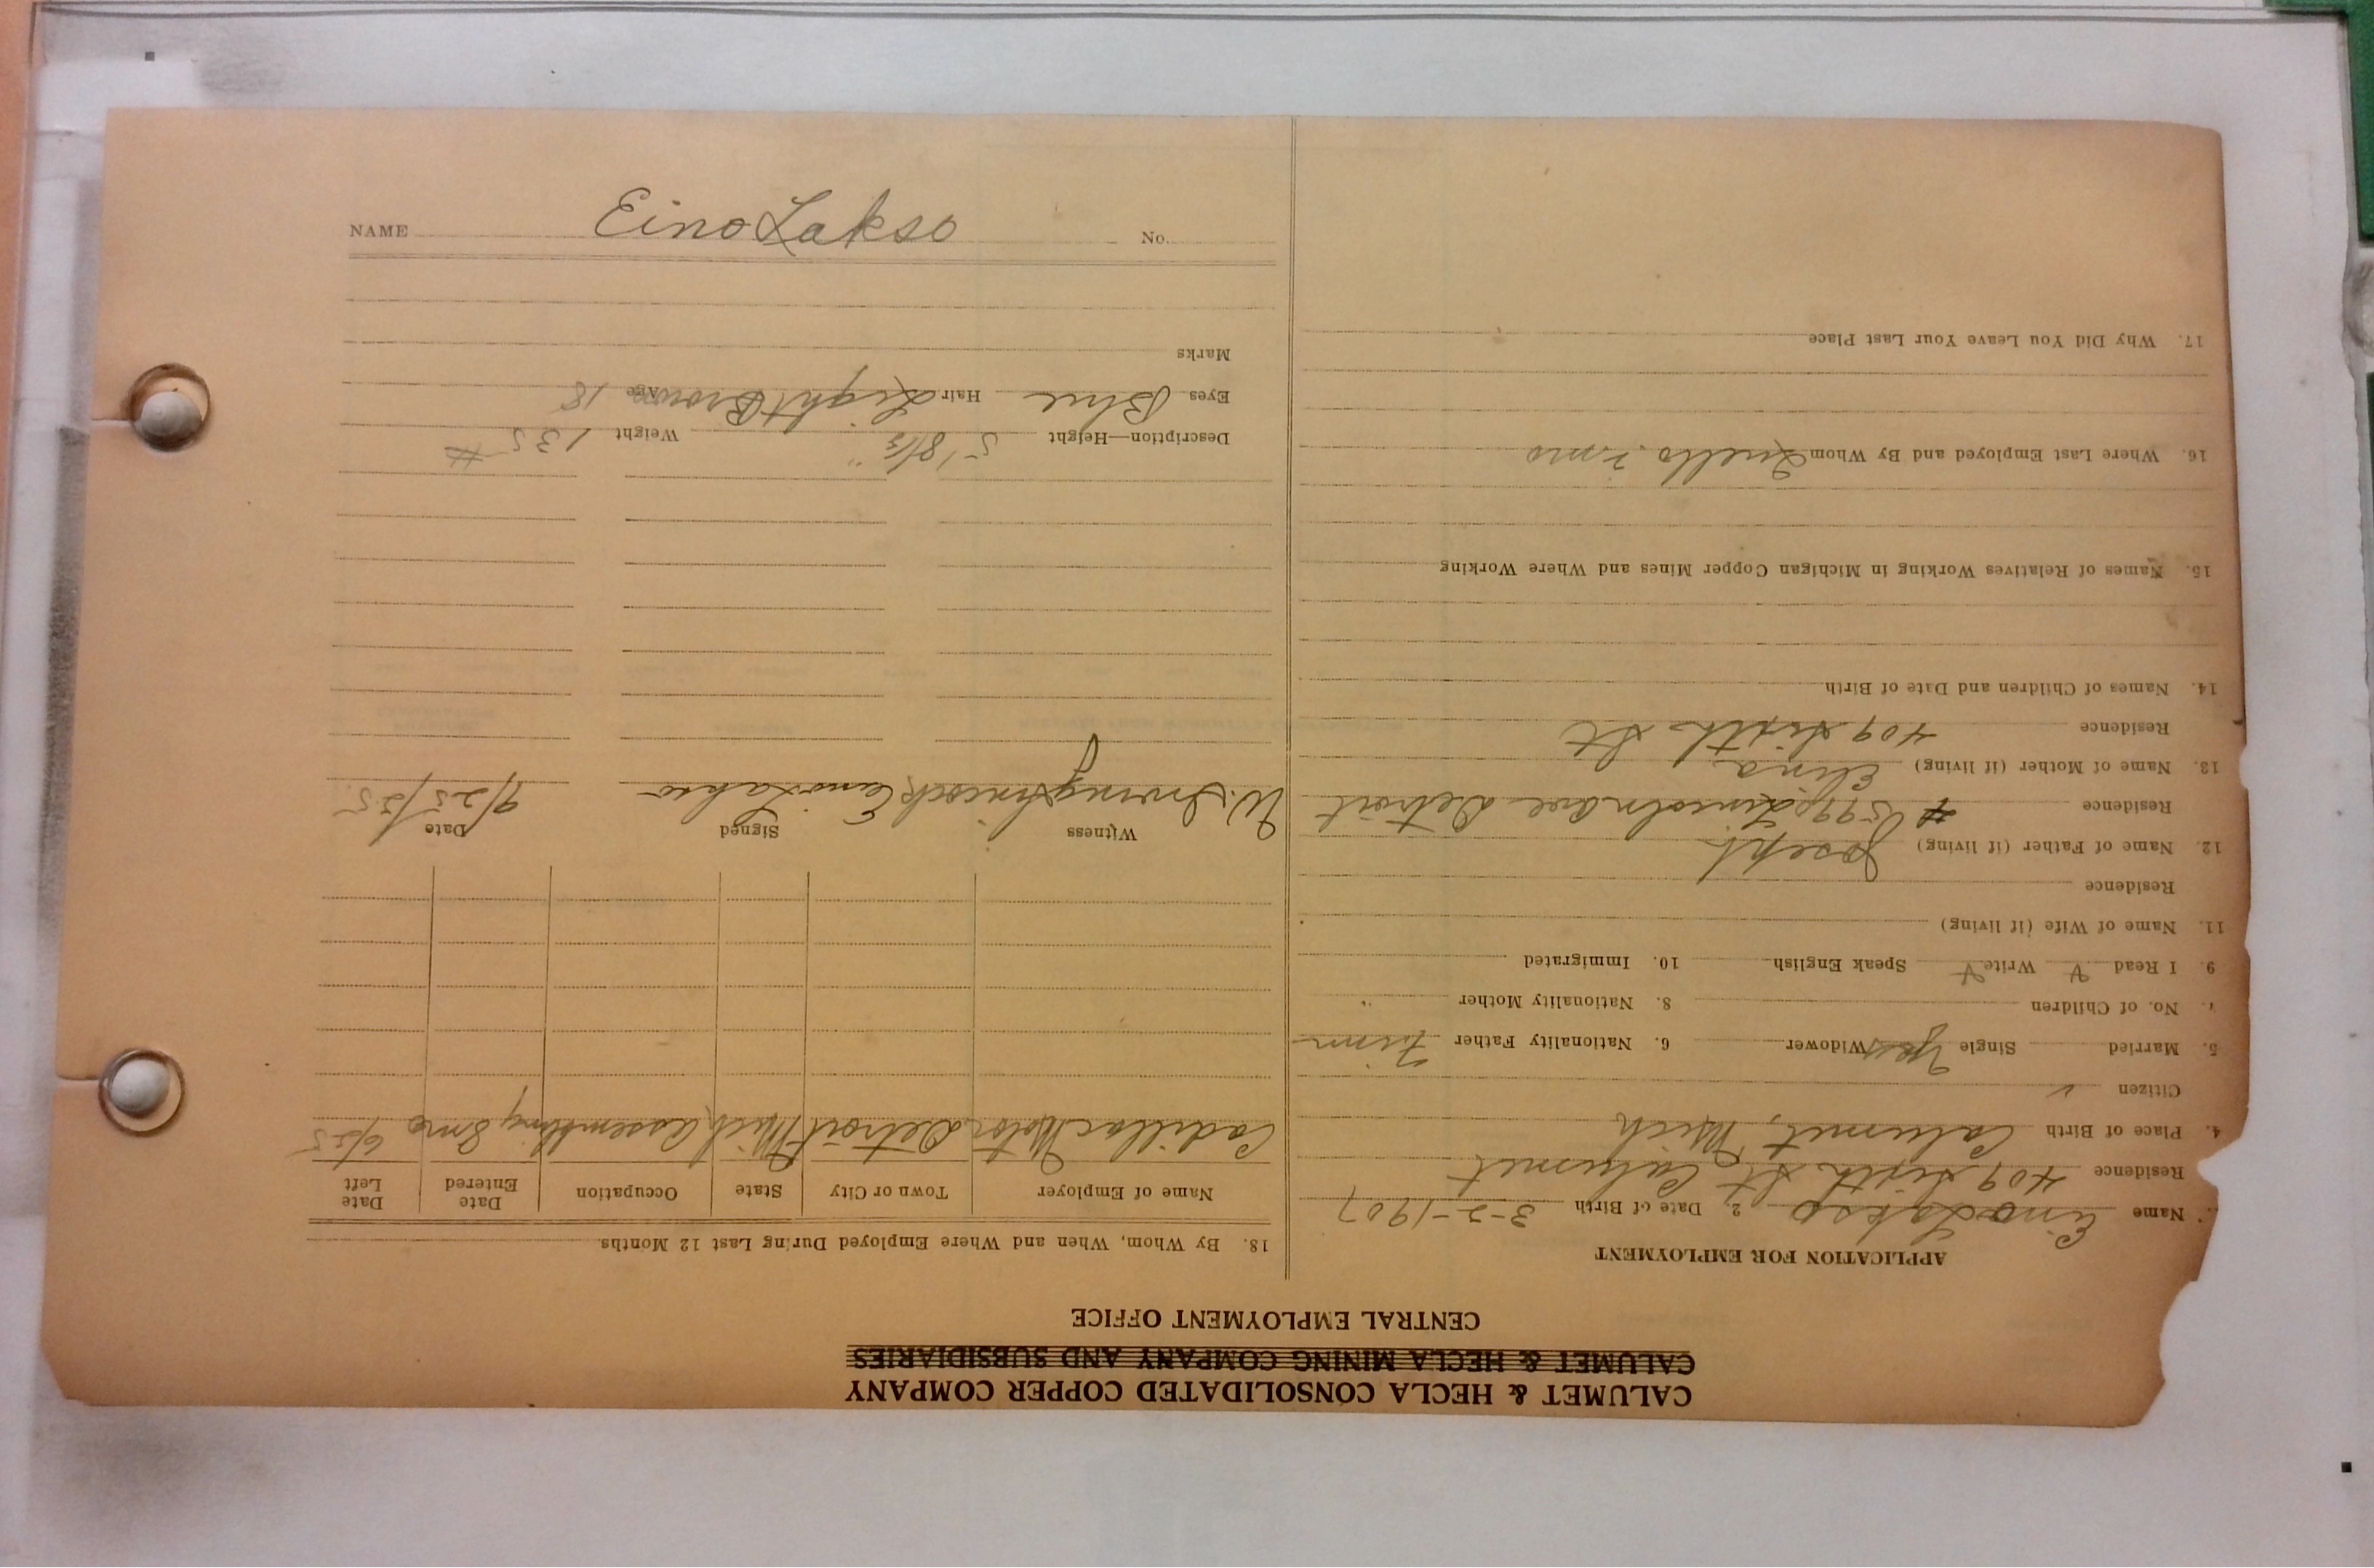 CALUMET & HECLA CONSOLIDATED COPPER COMPANY
CALUMET & HECLA MINING COMPANY AND SUBSIDIARIES
CENTRAL EMPLOYMENT OFFICE
APPLICATION FOR EMPLOYMENT
Name Eino Lakso 2. Date of Birth 3-2-1907
Residence 409 Sixth St Calumet
4. Place of Birth Calumet, Mich
Citizen ✓
5. Married Single Yes Widower 6. Nationality Father Finn
No. of Children 8. Nationality Mother "
9. I Read Write Speak English 10. Immigrated
11. Name of Wife (if living)
Residence
12. Name of Father (if living) Joseph
Residence Lincoln ave Detroit
13. Name of Mother (if living) Elina
Residence 409 Sixth St
14. Names of Children and Date of Birth
15. Names of Relatives Working in Michigan Copper Mines and Where Working
16. Where Last Employed and By Whom
17. Why Did You Leave Your Last Place
18. By Whom, When and Where Employed During Last 12 Months
Name of Employer Town or City State Occupation Date Entered Date Left
Cadillac Motor Detroit Mich Assembling 8 mo 6/25
Witness Signed Date
W. Irving Eino Lakso 9/25/25
Description—Height 5' 8½" Weight 135 #
Eyes Blue Hair Light Brown Age 18
Marks
NAME Eino Lakso No.